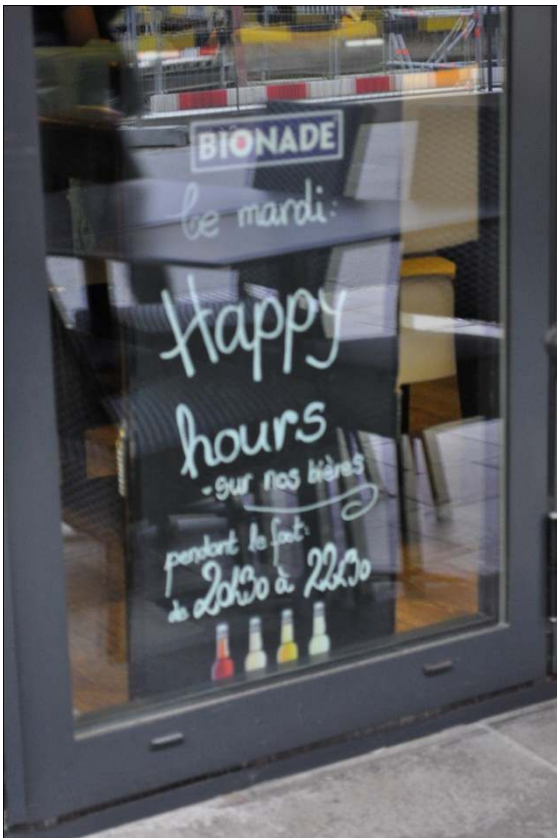 BIONADE
le mardi:
Happy
hours
- sur nos bières
pendant le foot:
de 20h30 à 22h30